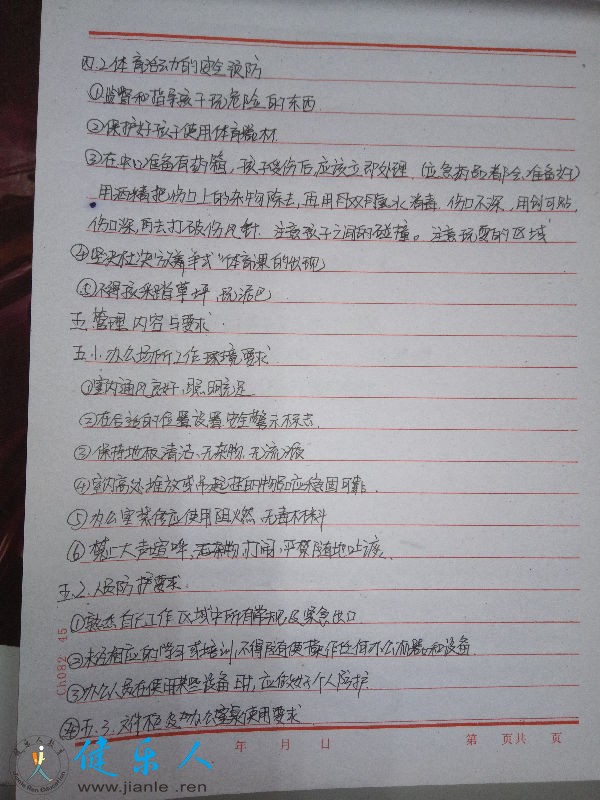 四.2体育活动的安全预防
①监督和指导孩子玩危险的东西
②保护好孩子使用体育器材
③在中心准备有药箱，孩子受伤后应该立即处理（应急药品都会准备好）
用酒精把伤口上的杂物除去，再用双氧水消毒 伤口不深，用创可贴
伤口深，再去打破伤风针. 注意孩子之间的碰撞。注意玩耍的区域
④坚决杜决"放养式"体育课的出现
⑤不得孩采踏草坪，玩泥巴
五.管理内容与要求.
五.1.办公场所工作环境要求.
①室内通风良好，照明充足.
②在合适的位置设置安全警示标志.
③保持地板清洁、无杂物，无流液
④室内高处堆放或吊起的物品应稳固可靠.
⑤办公室装修应使用阻燃、无毒材料
⑥禁止大声喧哗、打闹，严禁随地吐痰.
五.2.人员防护要求.
①熟悉自己工作区域中所有常规及紧急出口
②未经相应的学习或培训，不得随便操作任何办公机器和设备.
③办公人员在使用某些设备时，应做好个人防护.
④五.3.文件柜及办公桌使用要求
年 月 日
第 页共 页
Ch082 45
健乐人
www.jianle.ren